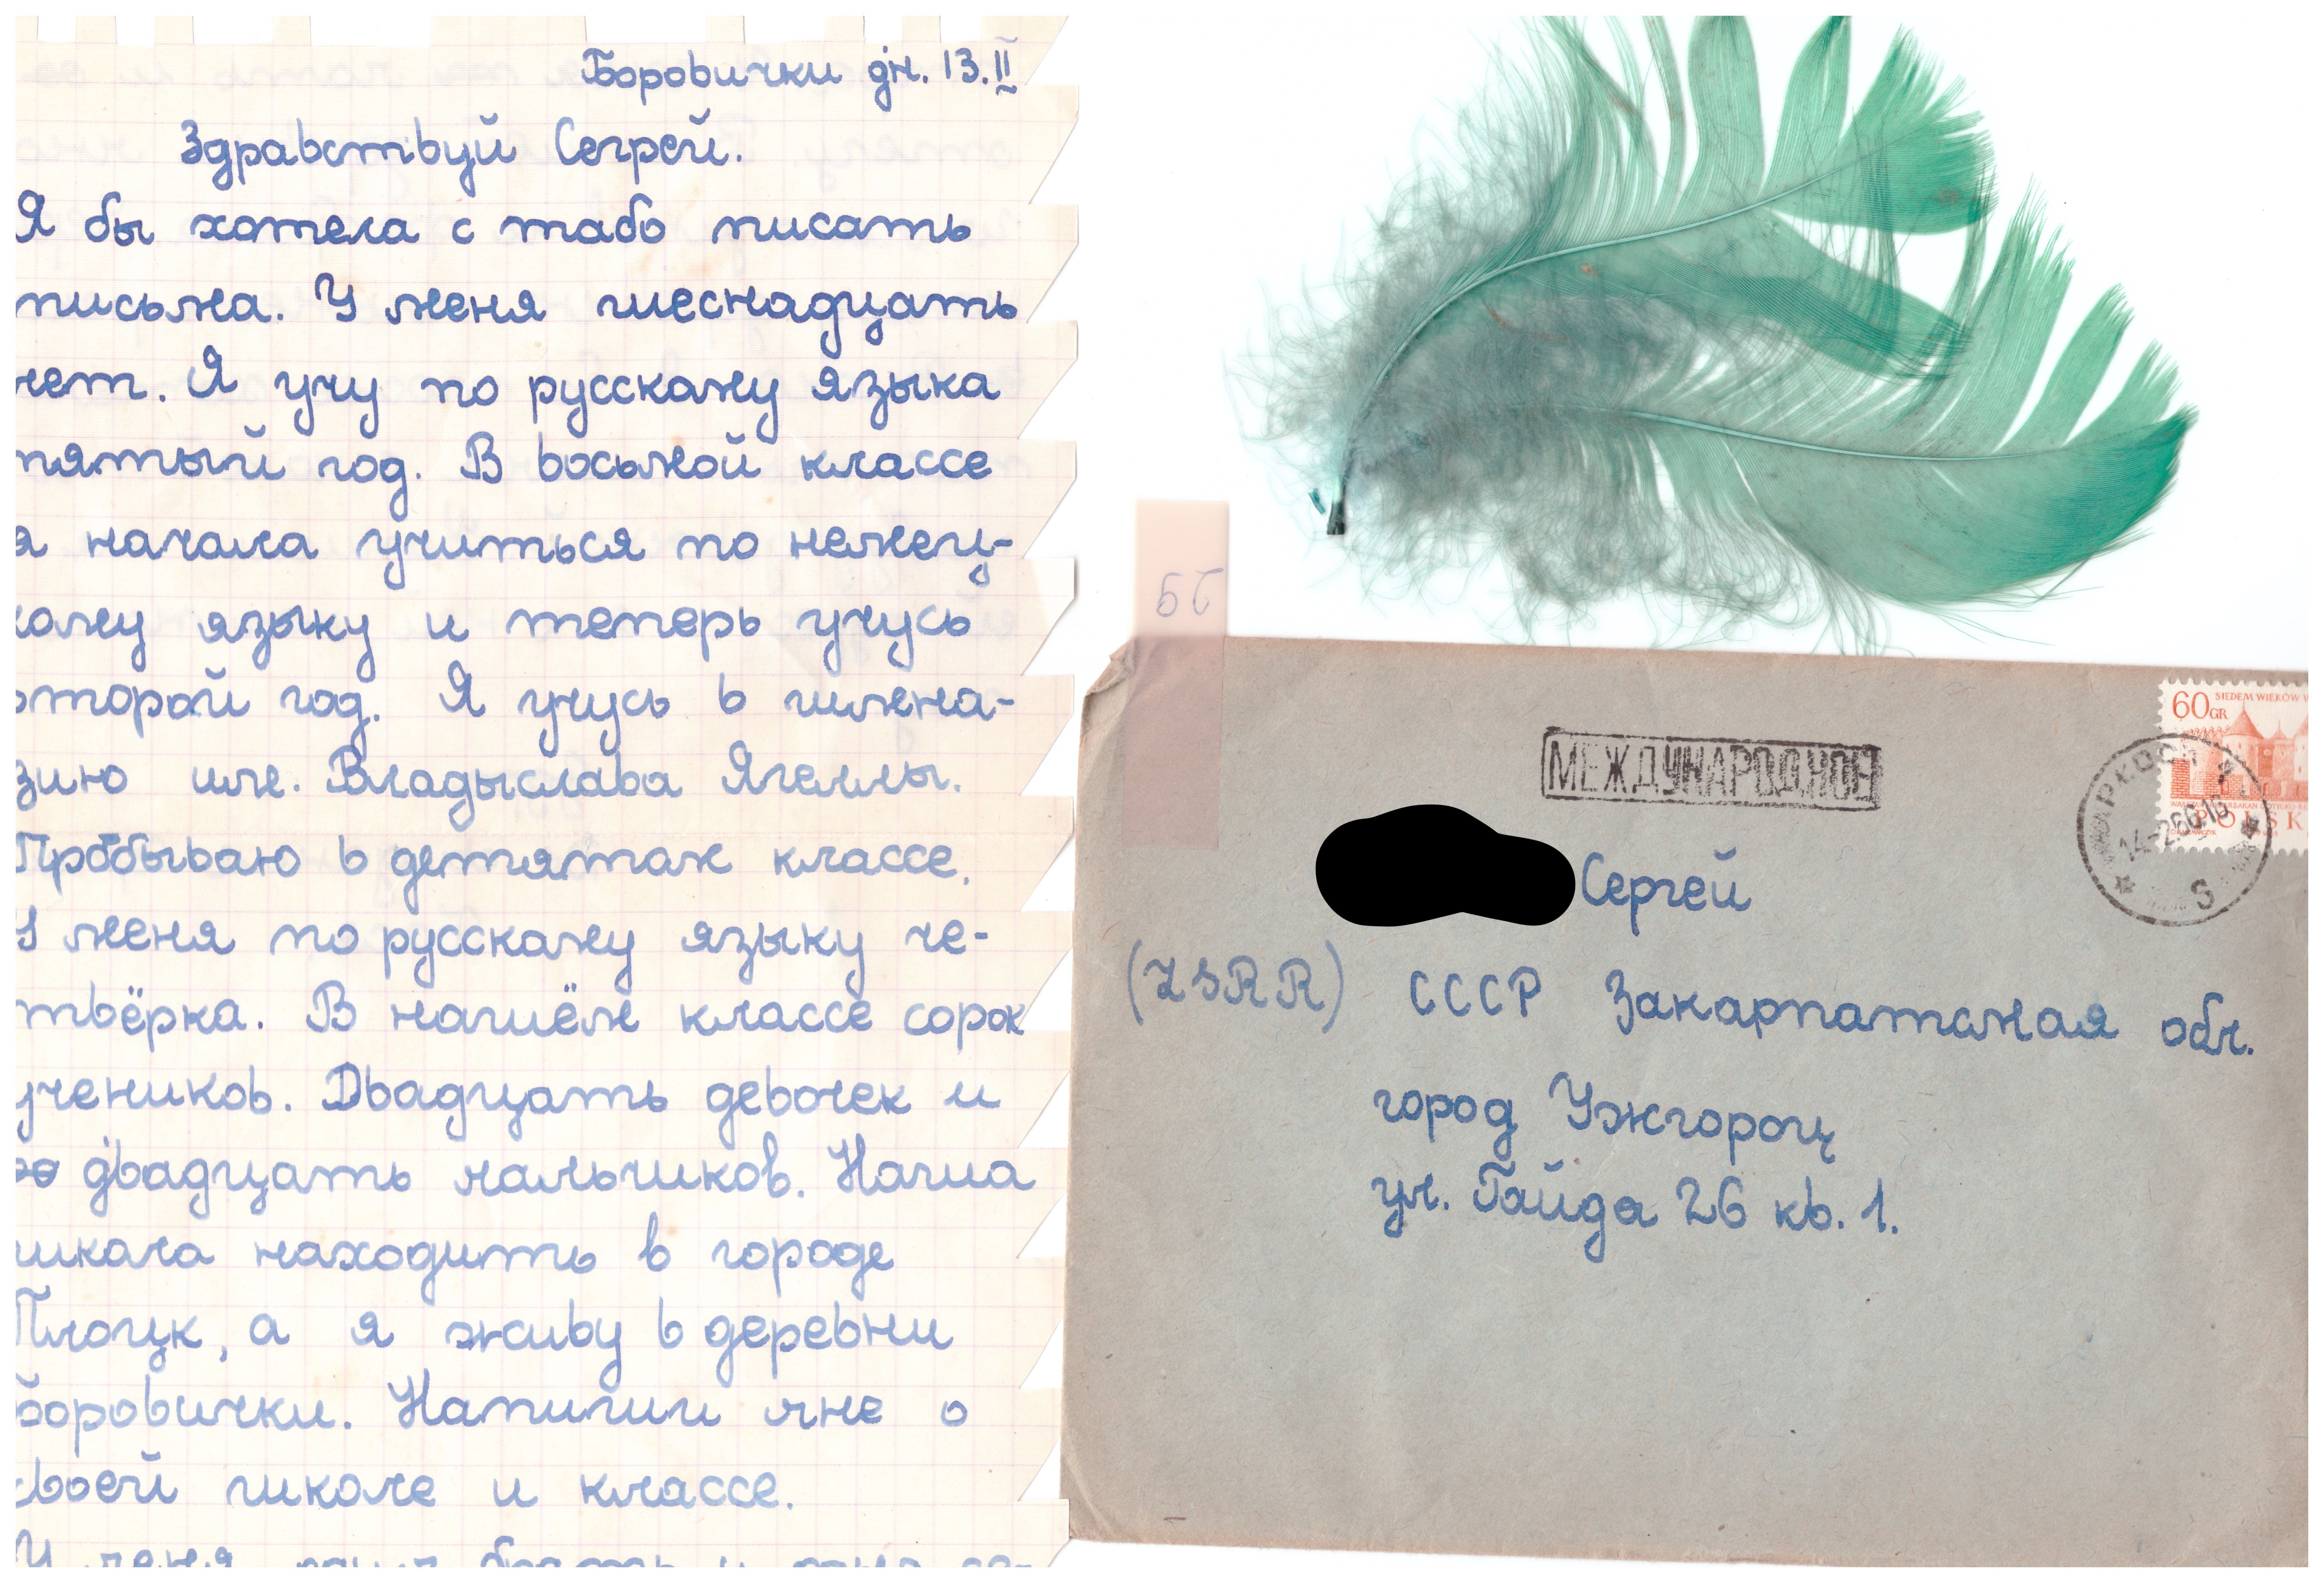 Боровички дн. 13.II
Здравствуй Сергей.
Я бы хотела с табо писать
письма. У меня шеснадцать
лет. Я учу по русскаму языка
пятый год. В восьмой классе
я начала учиться по немец-
каму языку и теперь учусь
второй год. Я учусь в гимена-
зию им. Владыслава Ягеллы.
Пробываю в детятом классе.
У меня по русскаму языку че-
твёрка. В нашём классе сорок
учеников. Двадцать девочек и
двадцать мальчиков. Наша
шкала находить в городе
Плоцк, а я живу в деревни
Боровички. Напиши мне о
своей школе и классе.
У меня
60GR SIEDEM WIEKÓW
POLSK
14-2
S
МЕЖДУНАРОДНОЕ
Сергей
(ZSRR) СССР Закарпатская обл.
город Ужгород
ул. Гайда 26 кв. 1.